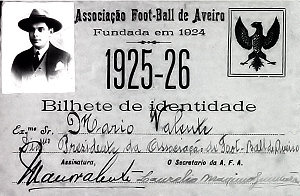 Associação Foot-Ball de Aveiro
Fundada em 1924
1925-26
Bilhete de identidade
Ex.mo Sr. Mario Valente
Presidente da Associação de Foot-Ball de Aveiro
Assinatura, O Secretario da A. F. A.